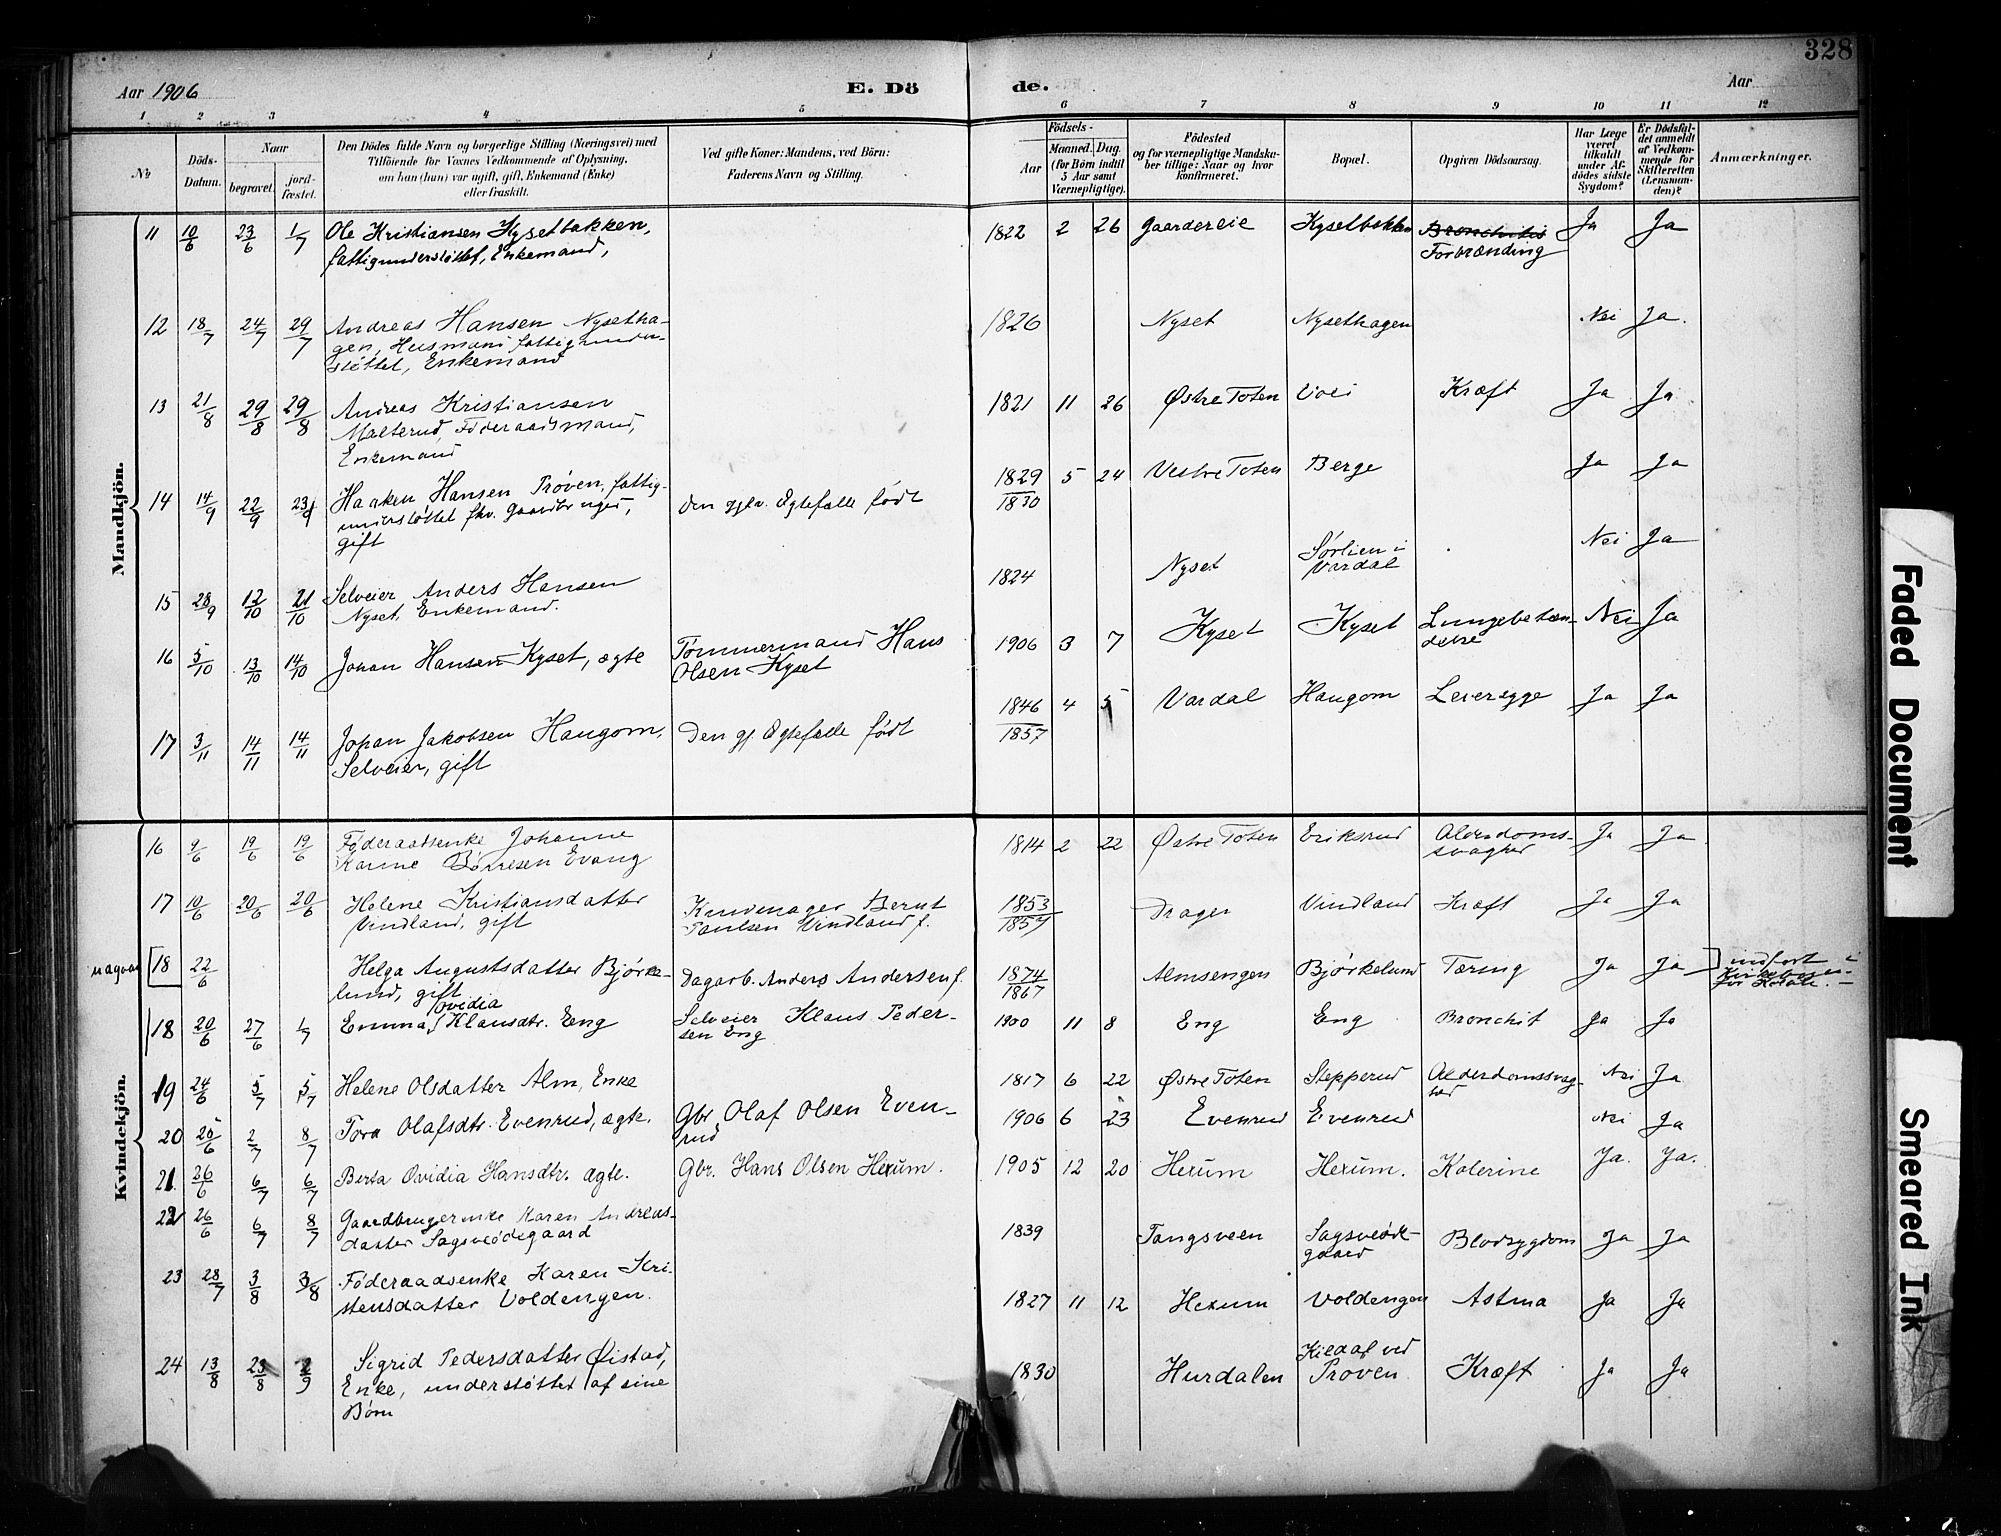 328
Aar 1906
E. Dö
de.
Aar
1 2 3 4 5 6 7 8 9 10 11 12
No
Döds-Datum.
Naar
begravet. jord-fæstet.
Den Dödes fulde Navn og borgerlige Stilling (Næringsvei) med
Tilföiende for Voxnes Vedkommende af Oplysning,
om han (hun) var ugift, gift, Enkemand (Enke)
eller fraskilt.
Ved gifte Koner: Mandens, ved Börn:
Faderens Navn og Stilling.
Födsels-
Aar
Maaned. Dag.
(for Börn indtil
5 Aar samt
Værnepligtige).
Födested
og for værnepligtige Mandska-
ber tillige: Naar og hvor
konfirmeret.
Bopæl.
Opgiven Dödsaarsag.
Har Læge
været
tilkaldt
under Af-
dödes sidste
Sygdom?
Er Dödsfal-
det anmeldt
af Vedkom-
mende for
Skifteretten
(Lensman-
den)?
Anmærkninger.
Mandkjön.
11 10/6 23/6 1/7 Ole Kristiansen Kysetbakken, 1822 2 26 Gaardereie Kysetbakken Bronchitis Ja Ja
fattigunderstøttet, Enkemand, Forbrænding
12 18/7 24/7 29/7 Andreas Hansen Nysetha- 1826 Nyset Nysethagen Nei Ja.
gen, Husmand fattigunder-
støttet, Enkemand
13 21/8 29/8 29/8 Andreas Kristiansen 1821 11 26 Østre Toten Voli Kræft Ja Ja
Malterud, Føderaadsmand,
Enkemand
14 14/9 22/9 23/9 Haaken Hansen Prøven, fattig- den gjlv. Egtefælle født 1829/1830 5 24 Vestre Toten Berge Ja Ja
understøttet fhv. Gaardbruger,
gift
15 28/9 12/10 21/10 Selveier Anders Hansen 1824 Nyset Sørlien i Vardal Nei Ja
Nyset, Enkemand.
16 5/10 13/10 14/10 Johan Hansen Kyset, ægte Tømmermand Hans 1906 3 7 Kyset Kyset Lungebetæn- Nei Ja
Olsen Kyset delse
17 3/11 14/11 14/11 Johan Jakobsen Haugom, Den gj. Egtefælle født 1846/1857 4 5 Vardal Haugom Leversyge Ja Ja
Selveier, gift
Kvindekjön.
16 9/6 19/6 19/6 Føderaadsenke Johanne 1814 2 22 Østre Toten Eriksrud Alderdoms- Ja Ja
Karine Børresen Evang svaghed
17 10/6 20/6 20/6 Helene Kristiansdatter 1853/1857 Drager Vindland Kræft Ja Ja
Vindland, gift Paulsen Vindland f.
18 22/6 Helga Augustsdatter Bjørke- Dagarb. Anders Andersen f. 1874/1867 Almsengen Bjørkelund Tæring Ja Ja indført i
lund, gift
18 20/6 27/6 1/7 Emma Ovidia Klausdtr. Eeng Selveier Klaus Peder- 1900 11 8 Eng Eng Bronchit Ja Ja
sen Eng
19 24/6 5/7 5/7 Helene Olsdatter Alm, Enke 1817 6 22 Østre Toten Stepperud Alderdomssvag- Nei Ja
hed
20 25/6 2/7 8/7 Tora Olafsdtr. Evenrud, ægte. Gbr Olaf Olsen Even- 1906 6 23 Evenrud Evenrud Nei Ja
rud
21. 26/6 6/7 6/7 Berta Ovidia Hansdtr. ægte. Gbr. Hans Olsen Hexum. 1905 12 20 Hexum Hexum. Kolerine Ja. Ja.
22 26/6 6/7 8/7 Gaardbrugerenke Karen Andreas- 1839 Tangsveen Sagsveøde- Blodsygdom Ja Ja
datter Sagsveødegaard gaard
23 28/7 3/8 3/8 Føderaadsenke Karen Kri- 1827 11 12 Hexum Voldengen Astma Ja Ja
stensdatter Voldengen.
24 13/8 23/8 2/9 Sigrid Pedersdatter Øistad, 1830 Hurdalen Kildal ved Prøven Kræft Ja Ja
Enke, understøttet af sine
Børn
Faded Document
Smeared Ink